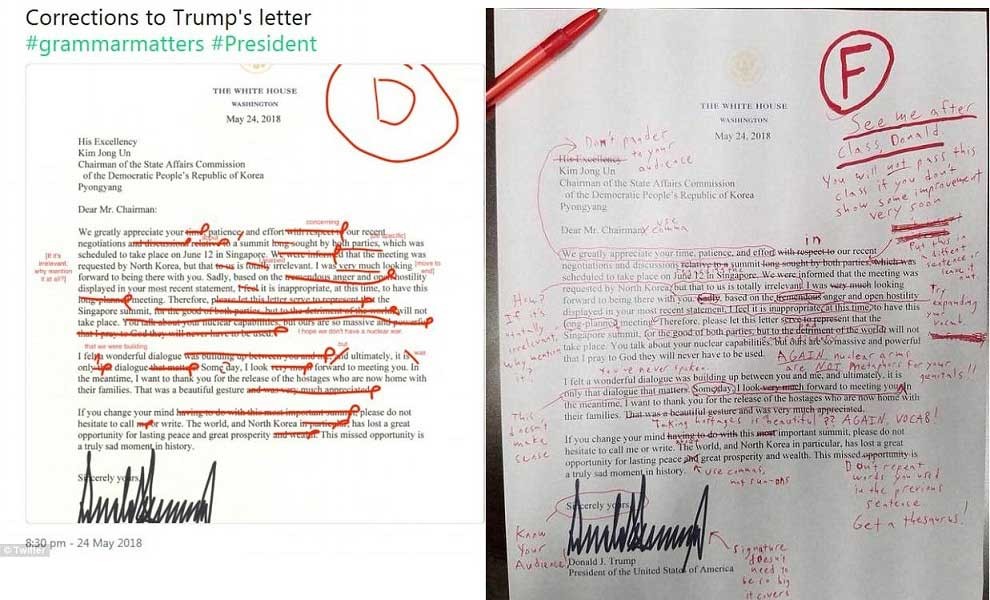 Corrections to Trump's letter
#grammarmatters #President
D
THE WHITE HOUSE
WASHINGTON
May 24, 2018
His Excellency
Kim Jong Un
Chairman of the State Affairs Commission
of the Democratic People's Republic of Korea
Pyongyang
Dear Mr. Chairman:
concerning
We greatly appreciate your time, patience, and effort with respect to our recent
negotiations and discussions relative to a summit long sought by both parties, which was
scheduled to take place on June 12 in Singapore. We were informed that the meeting was
[If it's irrelevant, why mention it at all?]
requested by North Korea, but that to us is totally irrelevant. I was very much looking
[move to end]
forward to being there with you. Sadly, based on the tremendous anger and open hostility
displayed in your most recent statement, I feel it is inappropriate, at this time, to have this
long-planned meeting. Therefore, please let this letter serve to represent that the
Singapore summit, for the good of both parties, but to the detriment of the world, will not
take place. You talk about your nuclear capabilities, but ours are so massive and powerful
that I pray to God they will never have to be used.
I hope we don't have a nuclear war.
that we were building
but
I felt a wonderful dialogue was building up between you and me, and ultimately, it is
was
only that dialogue that matters. Some day, I look very much forward to meeting you. In
the meantime, I want to thank you for the release of the hostages who are now home with
their families. That was a beautiful gesture and was very much appreciated.
If you change your mind having to do with this most important summit, please do not
hesitate to call me or write. The world, and North Korea in particular, has lost a great
opportunity for lasting peace and great prosperity and wealth. This missed opportunity is
a truly sad moment in history.
Sincerely yours,
8:30 pm - 24 May 2018
© Twitter
F
See me after
class, Donald.
You will not pass this
class if you don't
show some improvement
very soon
THE WHITE HOUSE
WASHINGTON
May 24, 2018
Don't pander
to your
audience
His Excellency
Kim Jong Un
Chairman of the State Affairs Commission
of the Democratic People's Republic of Korea
Pyongyang
Dear Mr. Chairman:
use
comma
in
We greatly appreciate your time, patience, and effort with respect to our recent
negotiations and discussions relative to a summit long sought by both parties, which was
scheduled to take place on June 12 in Singapore. We were informed that the meeting was
requested by North Korea, but that to us is totally irrelevant. I was very much looking
forward to being there with you. Sadly, based on the tremendous anger and open hostility
displayed in your most recent statement, I feel it is inappropriate, at this time, to have this
long-planned meeting. Therefore, please let this letter serve to represent that the
Singapore summit, for the good of both parties, but to the detriment of the world, will not
take place. You talk about your nuclear capabilities, but ours are so massive and powerful
that I pray to God they will never have to be used.
Put this in
different
sentence or
leave it
Try
expanding
your
vocab!
How?
If it's
irrelevant,
why
mention
it?
AGAIN nuclear arms
are NOT metaphors for your
genitals!!
You've never spoken.
I felt a wonderful dialogue was building up between you and me, and ultimately, it is
only that dialogue that matters. Some day, I look very much forward to meeting you. In
the meantime, I want to thank you for the release of the hostages who are now home with
their families. That was a beautiful gesture and was very much appreciated.
This
doesn't
make
sense
Taking hostages is beautiful?? AGAIN, VOCAB!
If you change your mind having to do with this most important summit, please do not
hesitate to call me or write. The world, and North Korea in particular, has lost a great
opportunity for lasting peace and great prosperity and wealth. This missed opportunity is
a truly sad moment in history.
use commas,
not run-ons
Don't repeat
words you used
in the previous
sentence.
Get a thesaurus!
Sincerely yours,
Know
Your
Audience
Donald J. Trump
President of the United States of America
Signature
doesn't
need to
be so big
it covers